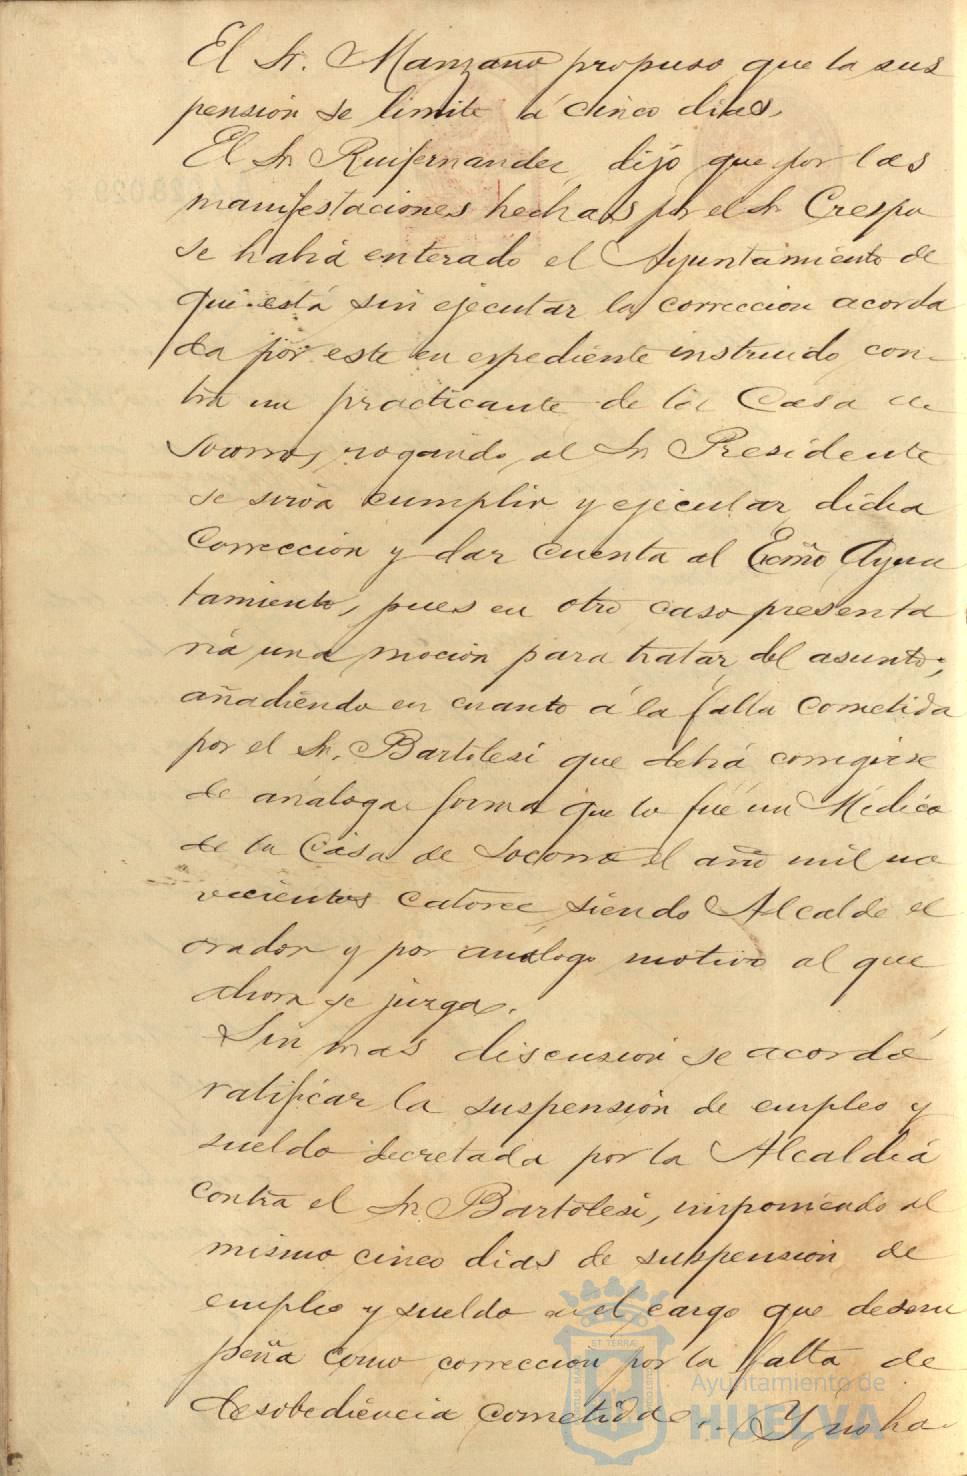 El Sr. Manzano propuso que la sus
pensión se limite á cinco dias.
El Sr Ruifernandez dijo que por las
manifestaciones hechas por el Sr Crespo
se habrá enterado el Ayuntamiento de
que está sin ejecutar la corrección acorda
da por este en expediente instruido con-
tra un practicante de la Casa de
Socorro, rogando al Sr Presidente
se sirva cumplir y ejecutar dicha
Corrección y dar cuenta al Excmo Ayun
tamiento, pues en otro caso presenta
ria una moción para tratar del asunto;
añadiendo en cuanto á la falta cometida
por el Sr. Bartolesi que debrá corregirse
de análoga forma que lo fué un Médico
de la Casa de Socorro el año mil no
vecientos catorce siendo Alcalde el
orador y por análogo motivo al que
ahora se juzga.
Sin mas discusión se acordó
ratificar la suspensión de empleo y
sueldo decretada por la Alcaldiá
contra el Sr Bartolesi, imponiendo al
mismo cinco dias de suspensión de
empleo y sueldo en el cargo que desem
peña como corrección por la falta de
desobediencia cometida. Y no ha
ET TERRÆ
Ayuntamiento de
HUELVA